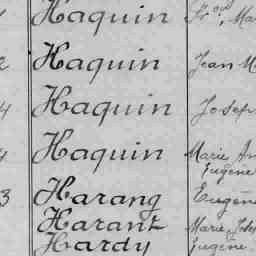 Haquin Fr.ois, Ma
2 Haquin Jean M
4 Haquin Josep
4 Haquin Marie An
Eugène
3 Harang Eugène
Harant Marie
Hardy Eugène